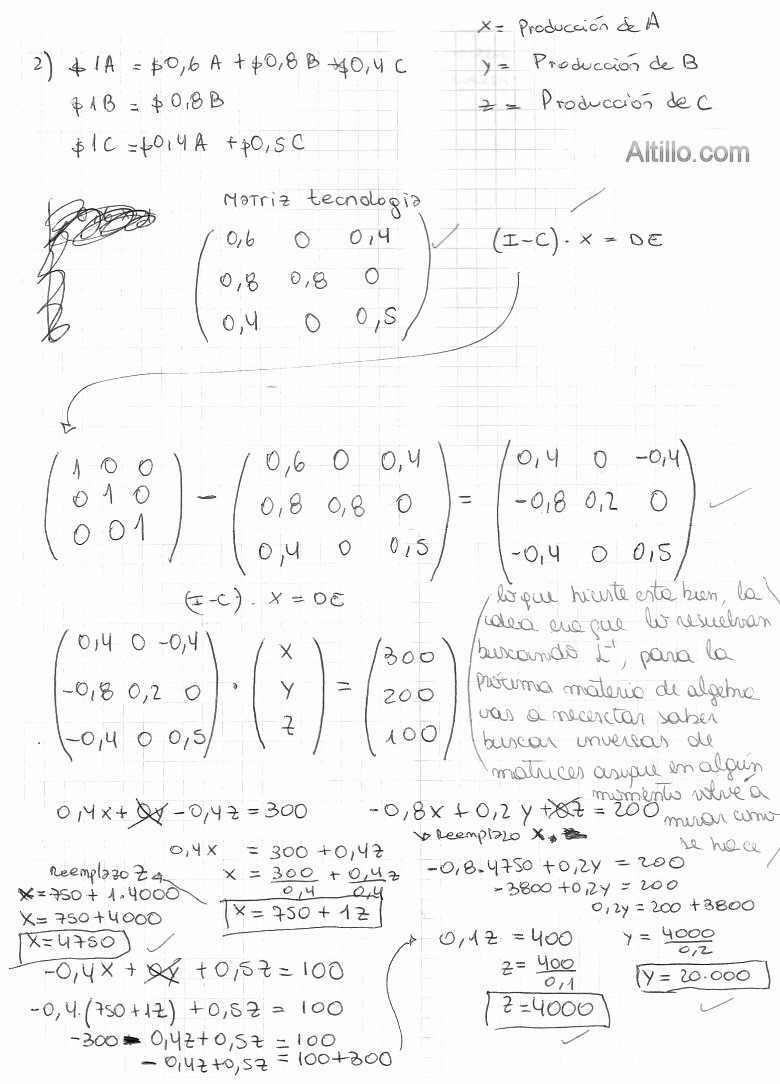 x = Producción de A
y = Producción de B
z = Producción de C
2) $1A = $0,6 A + $0,8 B + $0,4 C
$1B = $0,8B
$1C = $0,4A + $0,5C
Altillo.com
Matriz tecnologia
0,6 0 0,4
0,8 0,8 0
0,4 0 0,5
(I-C) . x = DE
1 0 0
0 1 0
0 0 1
-
0,6 0 0,4
0,8 0,8 0
0,4 0 0,5
=
0,4 0 -0,4
-0,8 0,2 0
-0,4 0 0,5
(I-C) . x = DE
0,4 0 -0,4
-0,8 0,2 0
-0,4 0 0,5
.
x
y
z
=
300
200
100
lo que hiciste esta bien, la
idea era que lo resuelvan
buscando L⁻¹, para la
próxima materia de algebra
vas a necesitar saber
buscar inversas de
matrices asique en algún
momento volvé a
mirar como
se hace
0,4x + 0y - 0,4z = 300
0,4x = 300 + 0,4z
x = 300/0,4 + 0,4/0,4 z
x = 750 + 1z
Reemplazo z
x = 750 + 1.4000
x = 750 + 4000
x = 4750
-0,4x + 0y + 0,5z = 100
-0,4.(750 + 1z) + 0,5z = 100
-300 - 0,4z + 0,5z = 100
- 0,4z + 0,5z = 100 + 300
0,1z = 400
z = 400/0,1
z = 4000
-0,8x + 0,2y + 0z = 200
Reemplazo x.
-0,8.4750 + 0,2y = 200
-3800 + 0,2y = 200
0,2y = 200 + 3800
y = 4000/0,2
y = 20.000